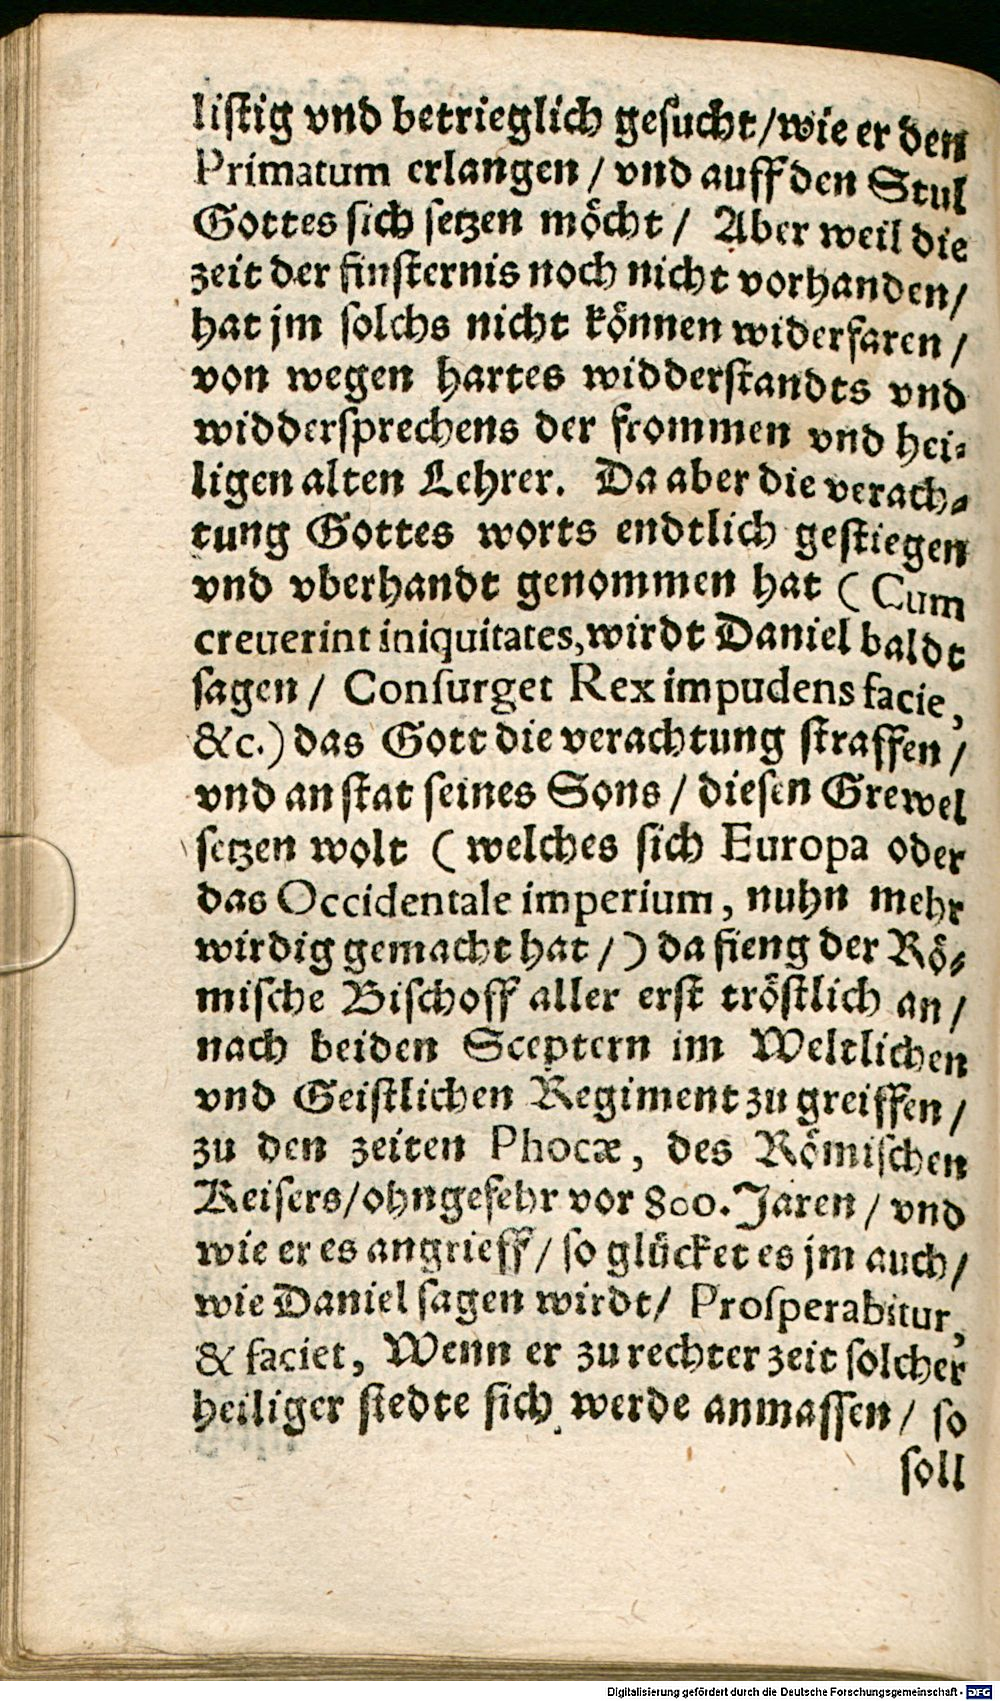 liſtig vnd betrieglich geſucht/wie er den
Primatum erlangen / vnd auff den Stul
Gottes ſich ſetzen möcht / Aber weil die
zeit der finſternis noch nicht vorhanden/
hat jm ſolchs nicht können widerfaren /
von wegen hartes widderſtandts vnd
widderſprechens der frommen vnd hei⸗
ligen alten Lehrer. Da aber die verach⸗
tung Gottes worts endtlich geſtiegen
vnd vberhandt genommen hat ( Cum
creuerint iniquitates, wirdt Daniel baldt
ſagen / Conſurget Rex impudens facie,
&c.) das Gott die verachtung ſtraffen /
vnd an ſtat ſeines Sons / dieſen Grewel
ſetzen wolt ( welches ſich Europa oder
das Occidentale imperium, nuhn mehr
wirdig gemacht hat /) da fieng der Rö⸗
miſche Biſchoff aller erſt tröſtlich an /
nach beiden Sceptern im Weltlichen
vnd Geiſtlichen Regiment zu greiffen /
zu den zeiten Phocæ, des Römiſchen
Keiſers/ohngefehr vor 800. Jaren / vnd
wie er es angrieff / ſo glücket es jm auch /
wie Daniel ſagen wirdt/ Proſperabitur,
& faciet, Wenn er zu rechter zeit ſolcher
heiliger ſtedte ſich werde anmaſſen / ſo
ſoll
Digitalisierung gefördert durch die Deutsche Forschungsgemeinschaft - DFG